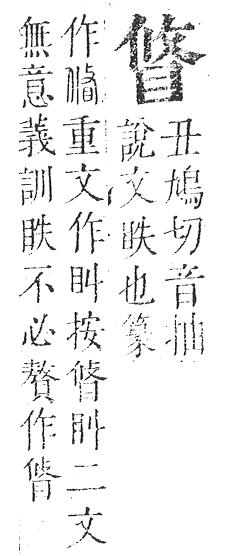 䀺
丑鳩切音抽
說文眣也篆
作重文作按䀺二文
無意義訓眣不必贅作